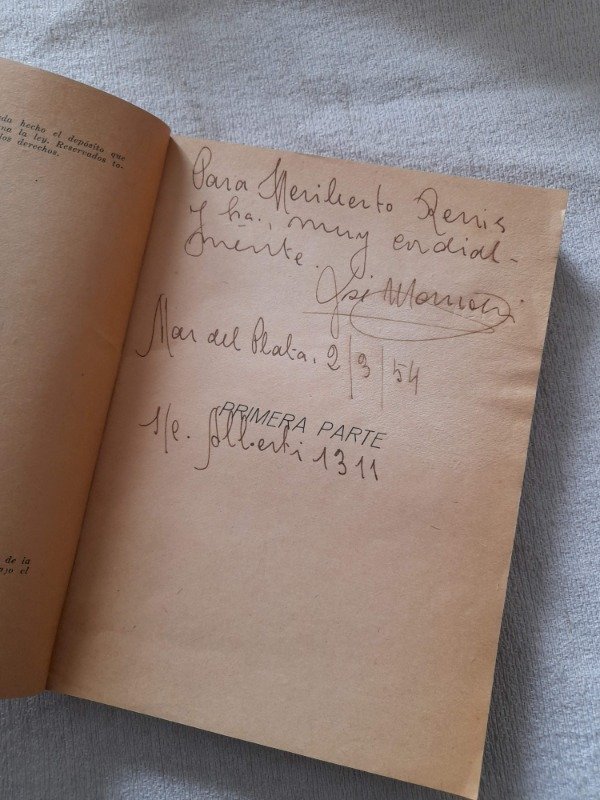 da hecho el depósito que
na la ley. Reservados to-
los derechos.
de la
ajo el
Para Heriberto Renis
y ha., muy cordial-
mente.
José
Mar del Plata. 2/3/54
PRIMERA PARTE
s/c. Alberti 1311